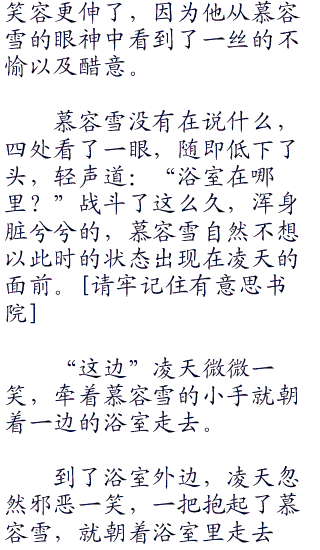 笑容更伸了，因为他从慕容
雪的眼神中看到了一丝的不
愉以及醋意。
慕容雪没有在说什么，
四处看了一眼，随即低下了
头，轻声道：“浴室在哪
里？”战斗了这么久，浑身
脏兮兮的，慕容雪自然不想
以此时的状态出现在凌天的
面前。[请牢记住有意思书
院]
“这边”凌天微微一
笑，牵着慕容雪的小手就朝
着一边的浴室走去。
到了浴室外边，凌天忽
然邪恶一笑，一把抱起了慕
容雪，就朝着浴室里走去